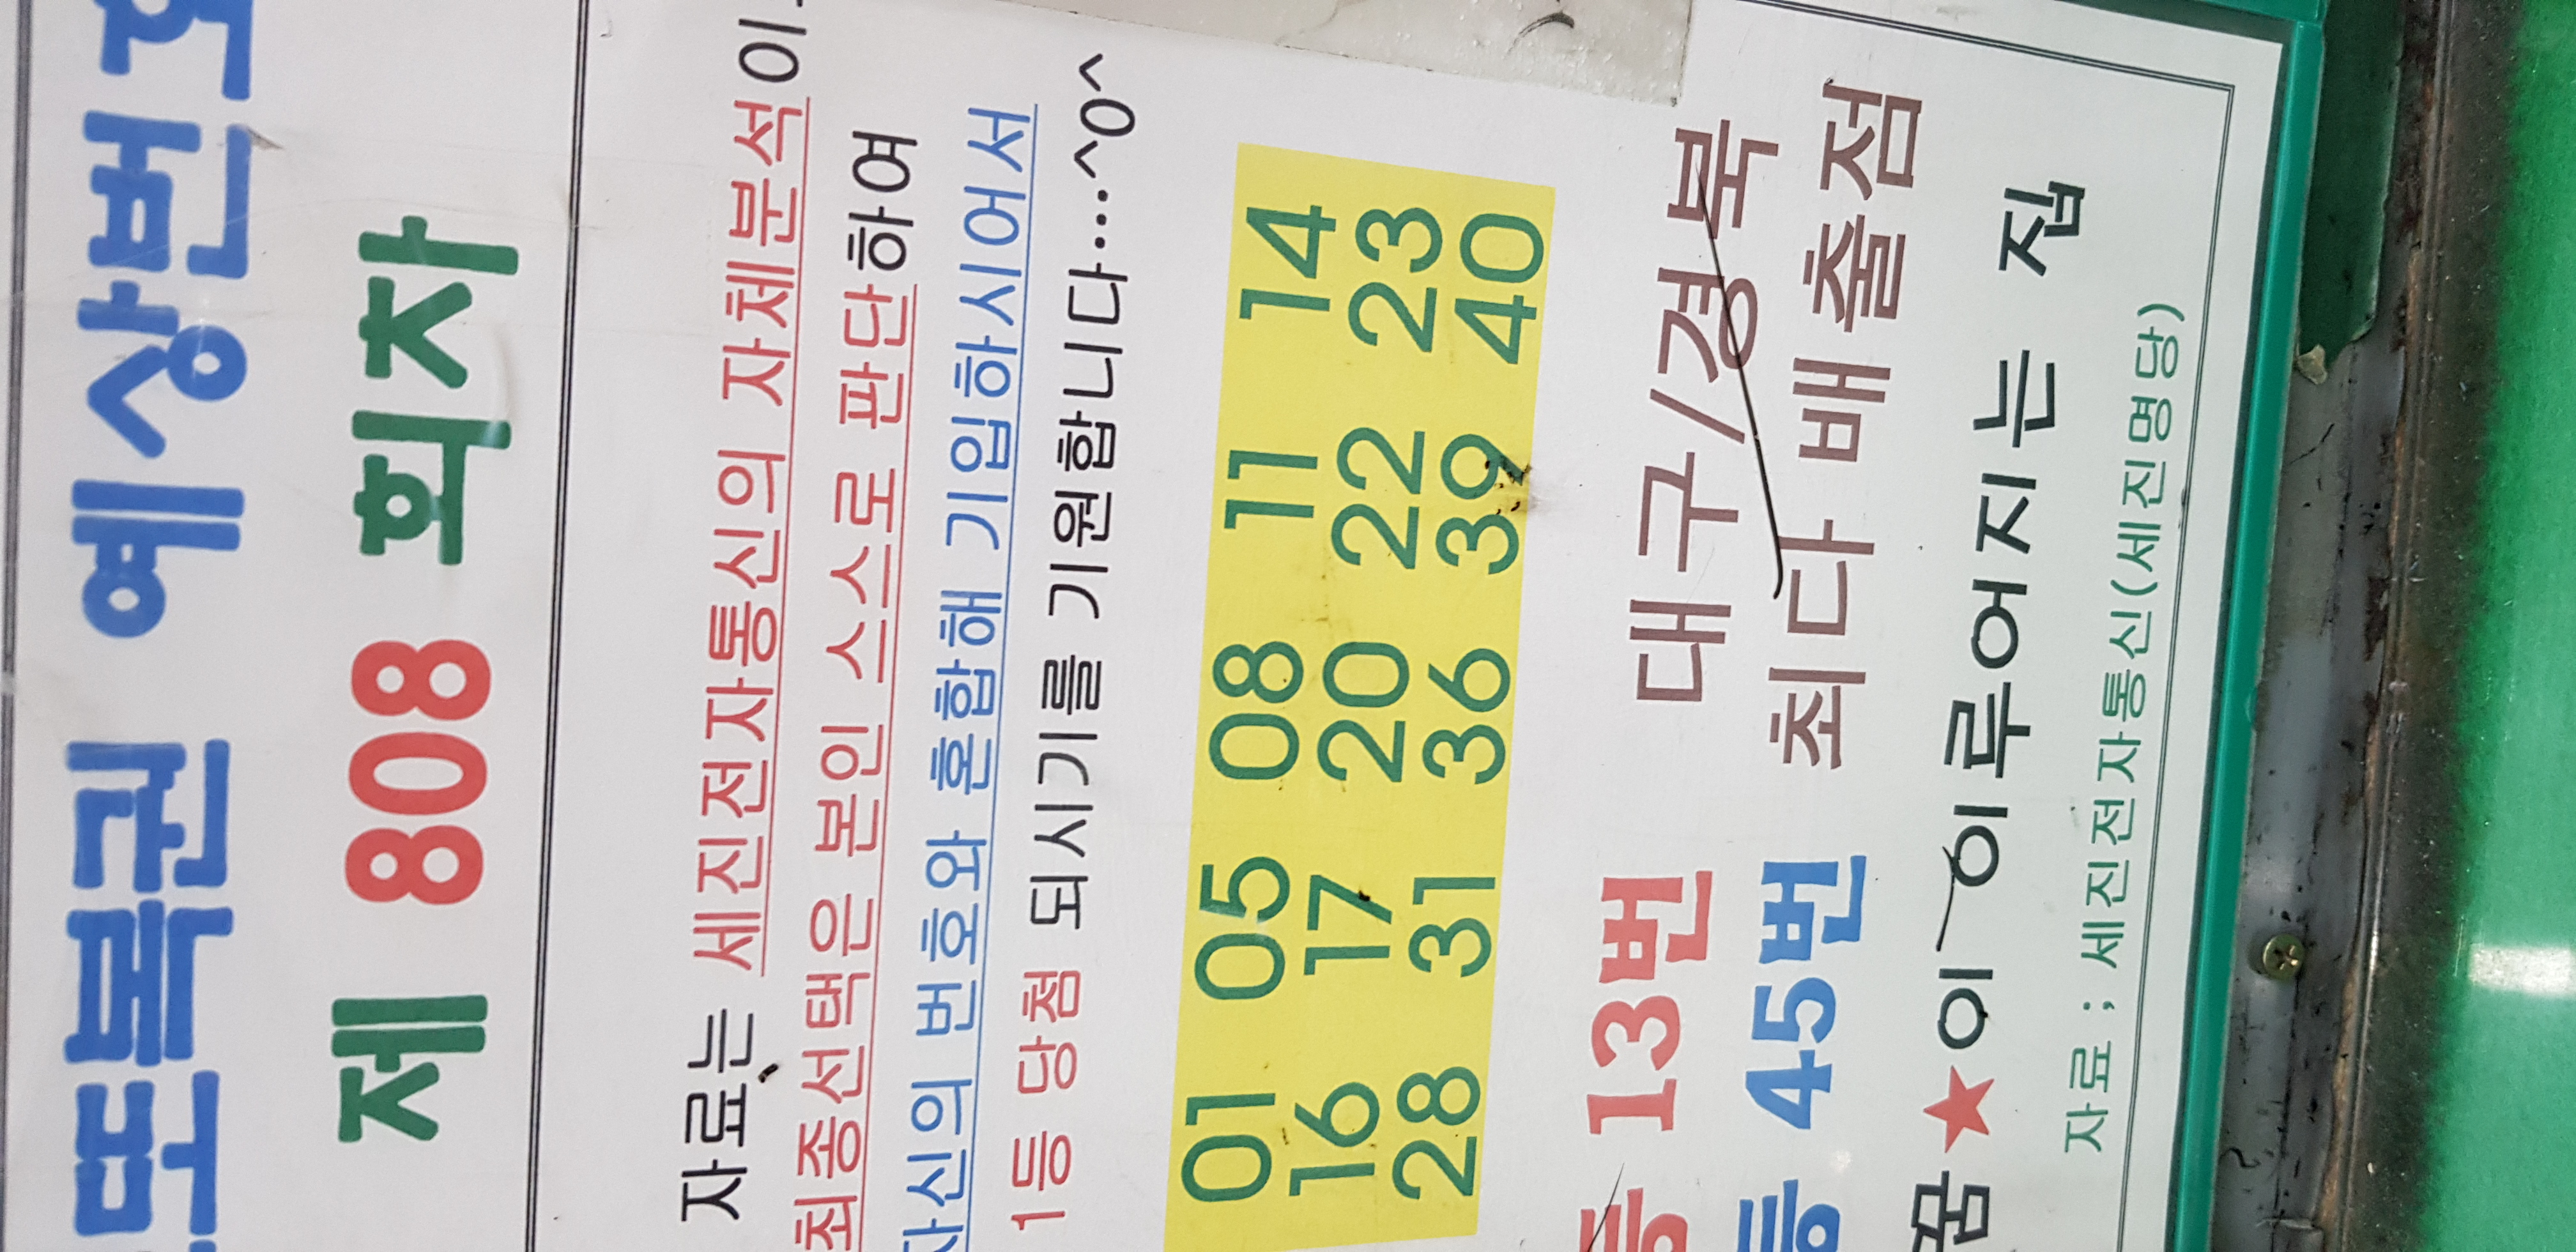 또복권 예상번호
제 808 회차
자료는 세진전자통신의 자체분석이
최종선택은 본인 스스로 판단하여
자신의 번호와 혼합해 기입하시어서
1등 당첨 되시기를 기원합니다...^0^
01 05 08 11 14
16 17 20 22 23
28 31 36 39 40
등 13번 대구/경북
등 45번 최다 배출점
꿈★이 이루어지는 집
자료 ; 세진전자통신(세진명당)